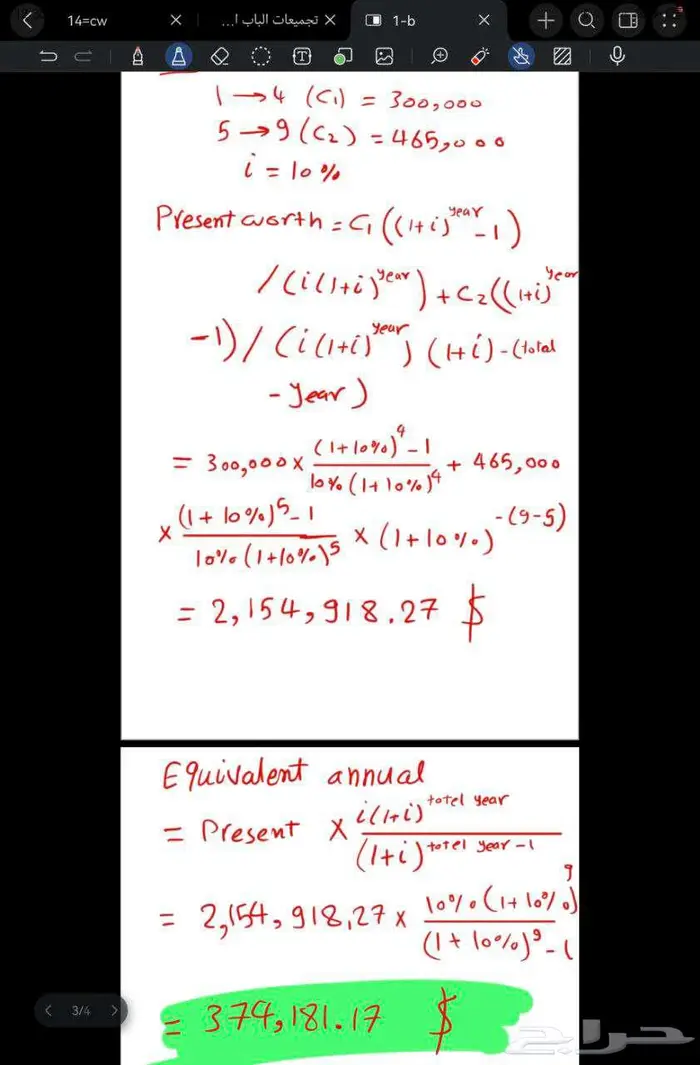 14=cw
تجميعات الباب ا...
1-b
1 → 4 (C1) = 300,000
5 → 9 (C2) = 465,000
i = 10%
Present worth = C1 ((1+i)^year - 1)
/(i(1+i)^year) + C2((1+i)^year
-1)/(i(1+i)^year) (1+i)-(total
- year)
= 300,000 × (1+10%)^4 -1 / 10%(1+10%)^4 + 465,000
× (1+10%)^5 -1 / 10%(1+10%)^5 × (1+10%)^-(9-5)
= 2,154,918.27 $
Equivalent annual
= Present × i(1+i)^totel year / (1+i)^totel year -1
= 2,154,918.27 × 10%(1+10%)^9 / (1+10%)^9 -1
= 374,181.17 $
3/4
حراج